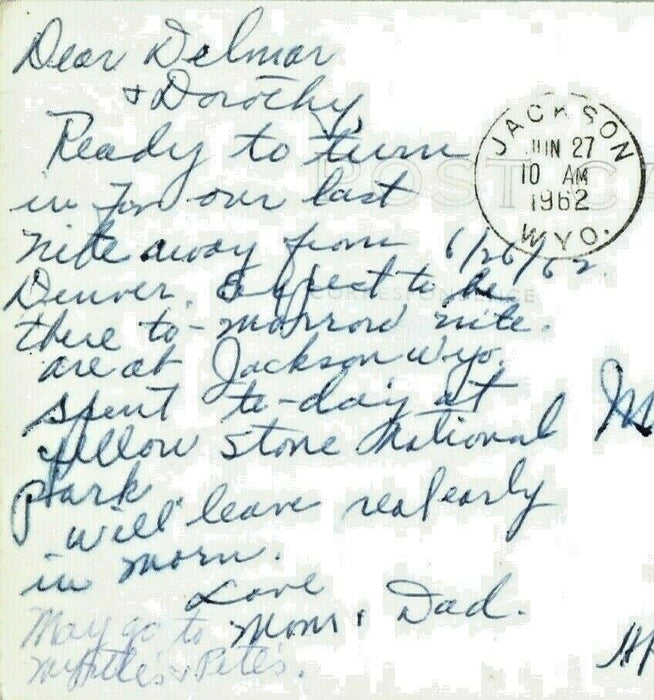 Dear Delmar
+ Dorothy,
Ready to turn
in for our last
nite away from 6/26/62.
Denver. Expect to be
there to-morrow nite.
are at Jackson Wyo.
spent to-day at
yellow stone National
Park
will leave real early
in morn.
Love
Mom & Dad.
May go to
Myrtle's & Pete's.
JACKSON
JUN 27
10 AM
1962
WYO.
POST CA
CORRESPONDENCE